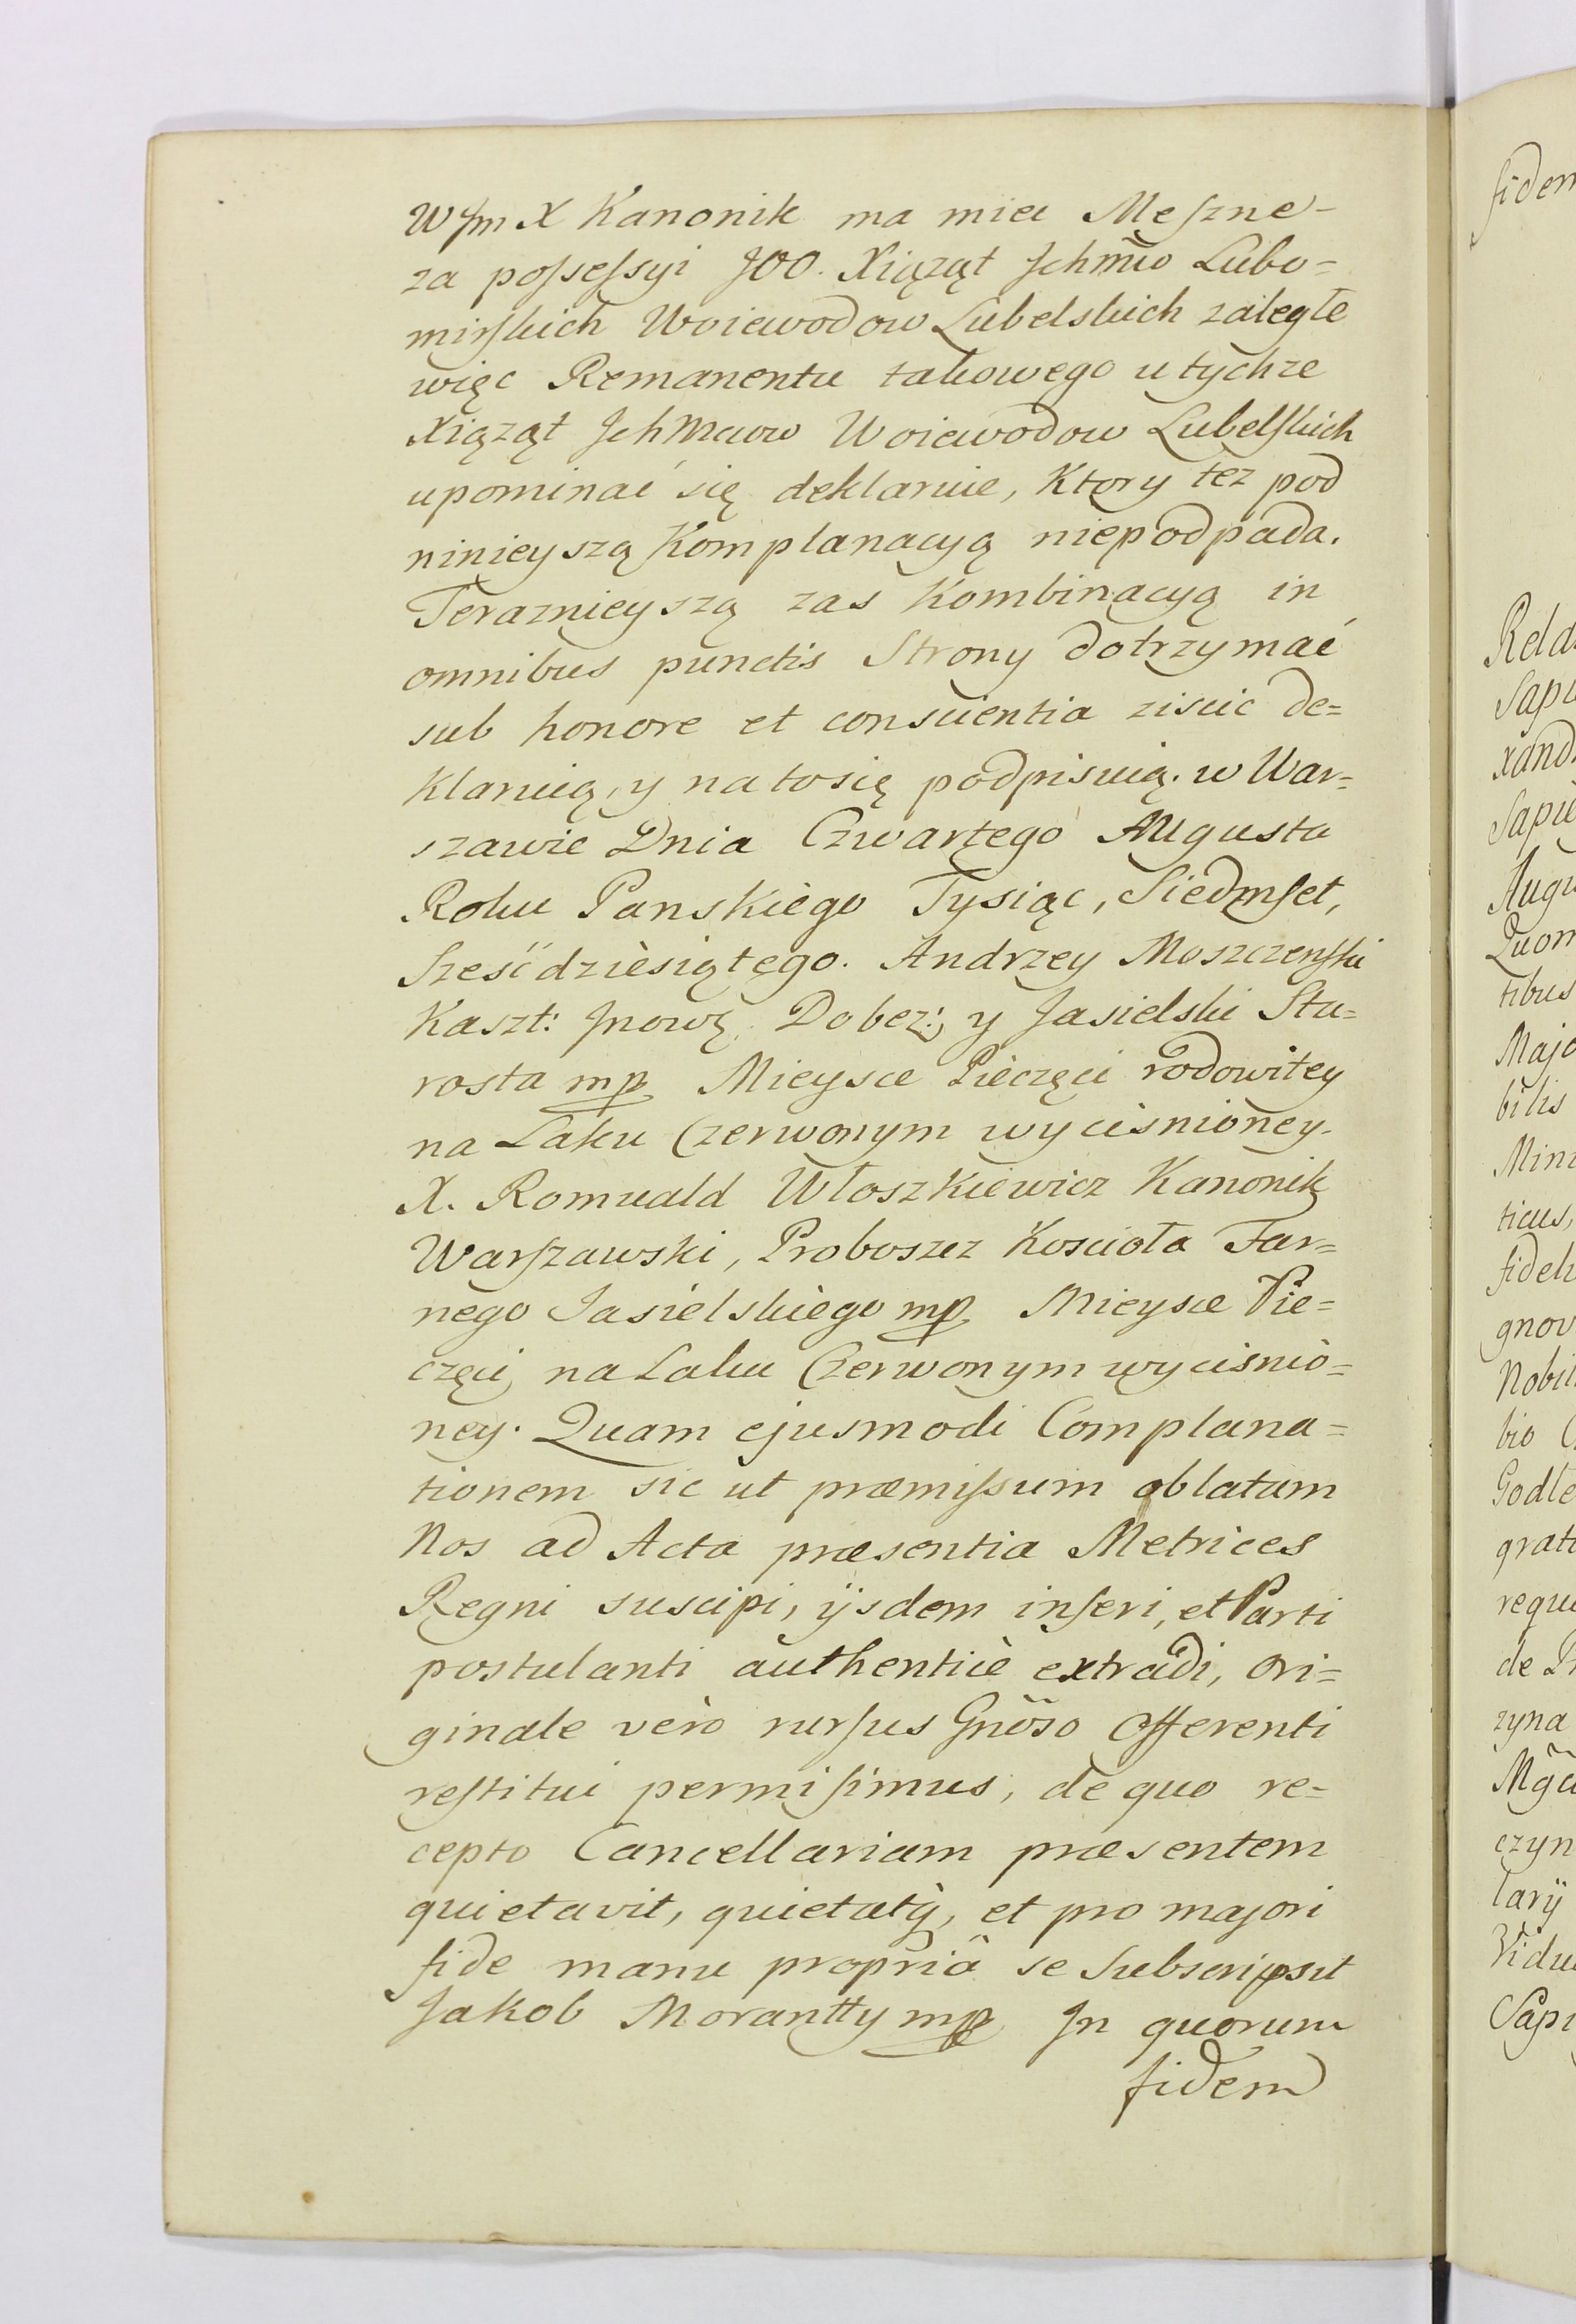 WJm X Kanonik ma mieć Meſzne-
za poſseſsyi JOO. Xiążąt Jchmćio Lubo=
mirſkich Woiewodow Lubelskich zaległe
więc Remanentu takowego u tychże
Xiążąt JchMciow Woiewodow Lubelſkich
upominać się deklaruie, Ktory też pod
ninieyszą Komplanacyą niepodpada.
Teraznieyszą zas Kombinacyą in
omnibus punctis Strony dotrzymać
sub honore et conscientia ziscic de=
klaruią, y na to się podpisuią. w War=
szawie Dnia Czwartego Augusta
Roku Panskiego Tysiąc, Siedmſet,
Sześćdziesiątego. Andrzey Moszczenſki
Kaszt: Jnowł. Dobez:, y Jasielski Sta=
rosta mp Mieysce Pieczęci rodowitey
na Laku Czerwonym wycisnioney.
X. Romuald Włoszkiewicz Kanonik
Warſzawski, Proboszcz Kościoła Far=
nego Jasielskiego mp Mieysce Pie=
częci na Laku Czerwonym wyciśnio=
ney. Quam ejusmodi Complana=
tionem sic ut præmiſsum oblatam
Nos ad Acta præsentia Metrices
Regni suscipi, ijsdem inſeri, et Parti
postulanti authenticè extradi, ori=
ginale verò rurſus Gnõso Offerenti
reſtitui permiſimus, de quo re=
cepto Cancellariam præsentem
quietavit, quietatq, et pro majori
fide manu propriâ se Subscripsit
Jakob Morantty mp Jn quorum
fidem
fidem
Majo
bilis
ticus,
gnov
Nobil
bio
grati
requi
zyna
czyn
larij